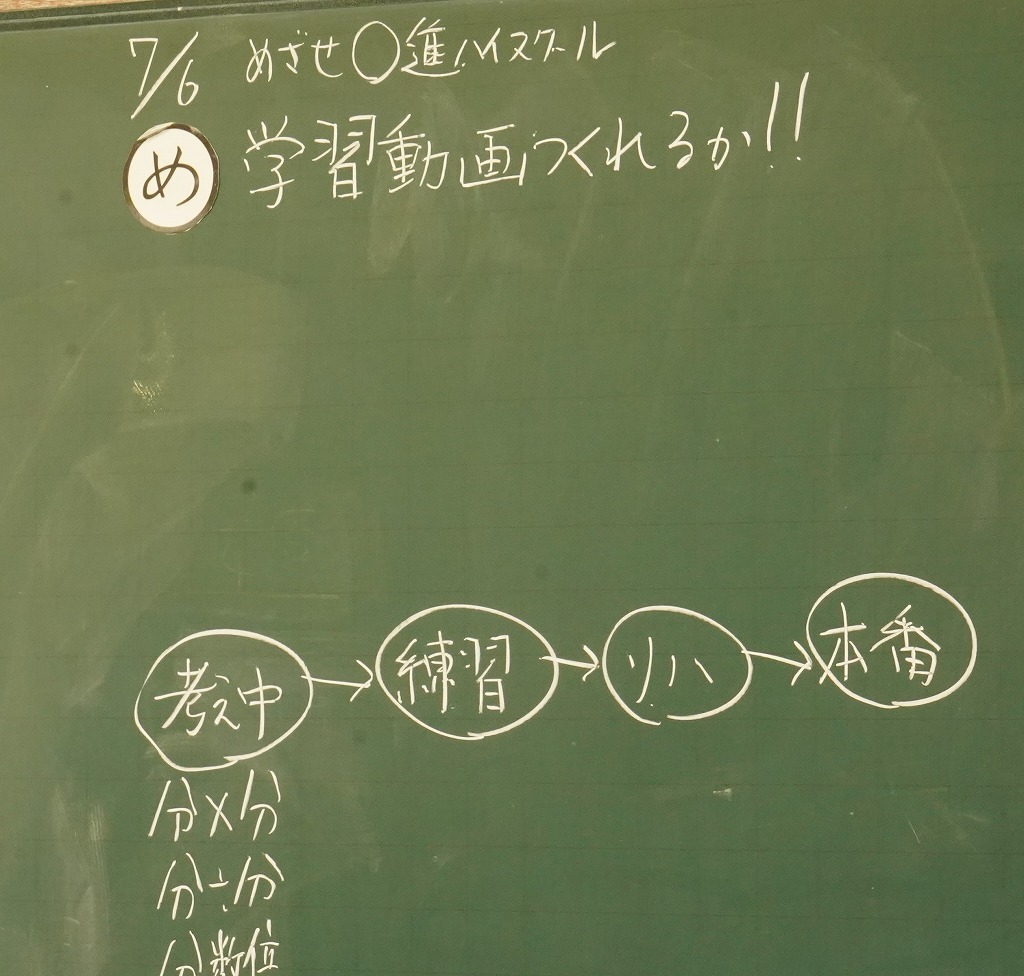 7/6 めざせ〇進ハイスクール
め 学習動画つくれるか!!
考え中→練習→リハ→本番
分×分
分÷分
分数位